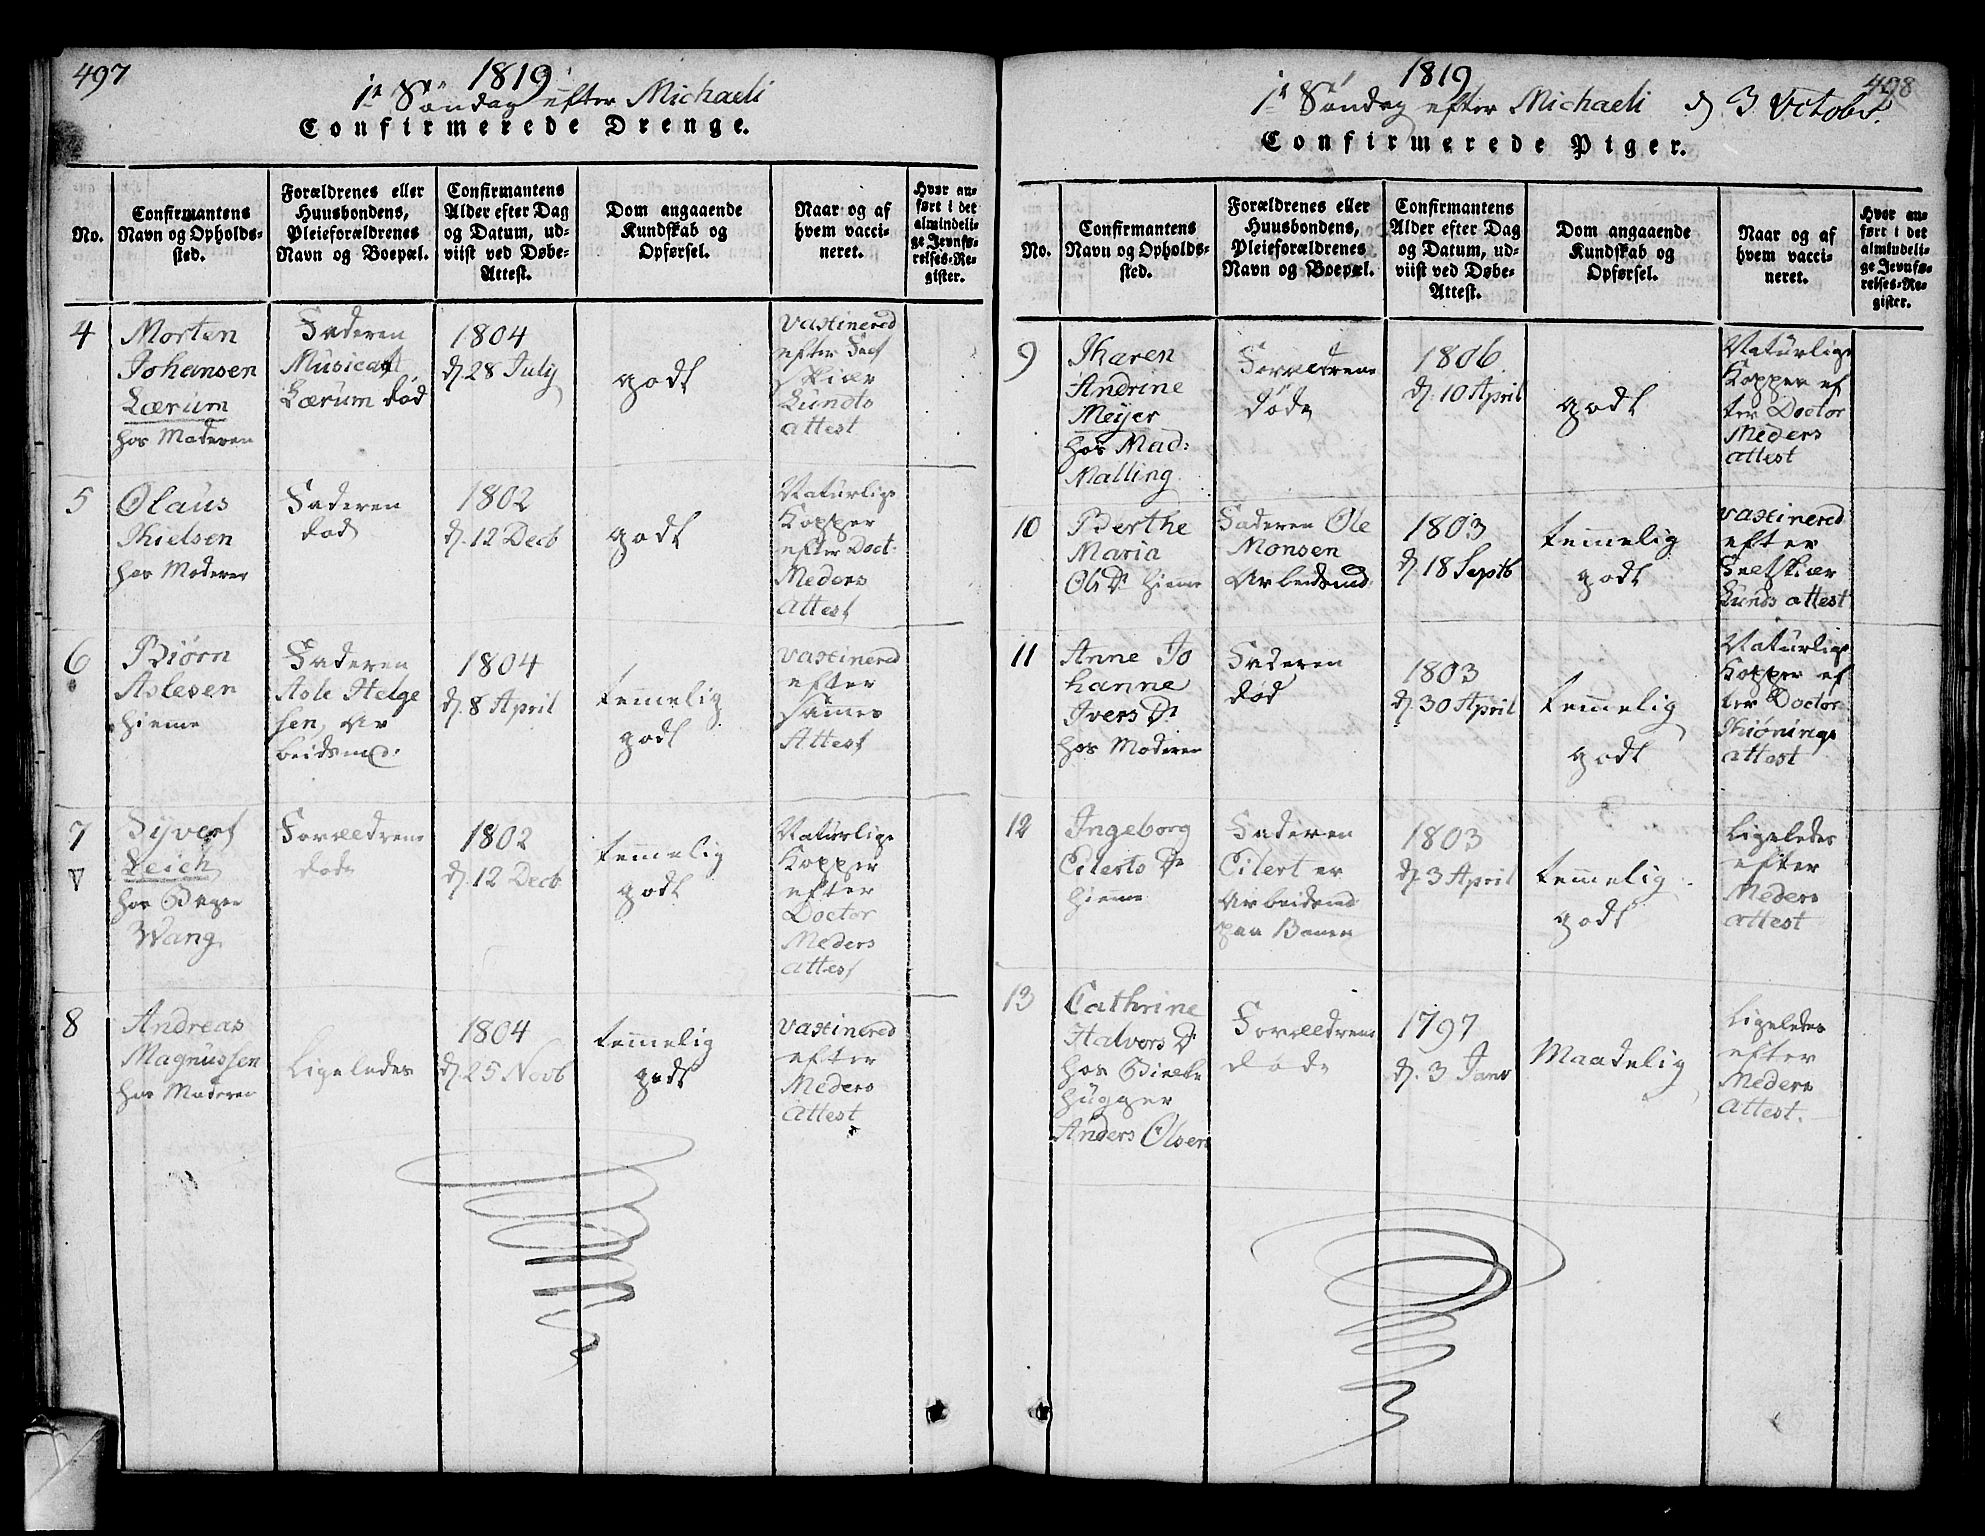 497
1819
1e Söndag efter Michaeli
Confirmerede Drenge.
No.
Confirmantens
Navn og Opholds-
sted.
Forældrenes eller
Huusbondens,
Pleieforældrenes
Navn og Boepæl.
Confirmantens
Alder efter Dag
og Datum, ud-
viist ved Døbe-
Attest.
Dom angaaende
Kundskab og
Opførsel.
Naar og af
hvem vacci-
neret.
Hvor an-
ført i det
almindeli-
ge Jevnfø-
relses-Re-
gister.
4
Morten
Johansen
Lærum
hos Moderen
Faderen
Musicat
Lærum død
1804
d. 28 July
godt
vaxinered
efter
Skiær
Lundts
attest
5
Olaus
Nielsen
hos Moderen
Faderen
død
1802
d. 12 Decb
godt
Naturlige
Kopper
efter Doct.
Meders
Attest
6
Biørn
Aslesen
hieme
Faderen
Asle Helge
sen, Ar
beidsmd.
1804
d. 8 April
temmelig
godt
vaxinered
efter
sames
Attest
7
Syvert
Leich
hos Bager
Wang
Forældrene
døde
1802
d. 12 Decb
temmelig
godt
Naturlige
Kopper
efter
Doctor
Meders
attest
8
Andreas
Magnussen
hos Moderen
Ligeledes
1804
d. 25 Novb
temmelig
godt
vaxinered
efter
Meders
Attest
498
1819
1e Söndag efter Michaeli d 3 Octobr.
Confirmerede Piger.
No.
Confirmantens
Navn og Opholds-
sted.
Forældrenes eller
Huusbondens,
Pleieforældrenes
Navn og Boepæl.
Confirmantens
Alder efter Dag
og Datum, ud-
viist ved Døbe-
Attest.
Dom angaaende
Kundskab og
Opførsel.
Naar og af
hvem vacci-
neret.
Hvor an-
ført i det
almindeli-
ge Jevnfø-
relses-Re-
gister.
9
Karen
Andrine
Meyer
hos Mad:
Malling
Forældrene
døde
1806
d. 10 April
godt
Naturlige
Kopper ef
ter Doctor
Meders
attest
10
Berthe
Maria
Ols Dr hieme
Faderen Ole
Monsen
Arbeidsmd.
1803
d. 18 Septb
temmelig
godt
vaxinered
efter
Feltskiær
Lunds attest
11
Anne Jo
hanne
Ivers Dr
hos Moderen
Faderen
død
1803
d. 30 April
temmelig
godt
Naturlige
Kopper ef
ter Doctor
Thiønings
attest
12
Ingeborg
Eilerts Dr
hieme
Faderen
Eilert er
Arbeidsmd
paa Banen
1803
d. 3 April
temmelig
godt
Ligeledes
efter
Meders
attest
13
Cathrine
Halvors Dr
hos Bielke
hugger
Anders Olsen
Forældrene
døde
1797
d. 3 Janv
Maadelig
Ligeledes
efter
Meders
attest.